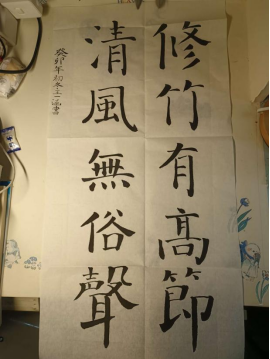 修竹有高節
清風無俗聲
癸卯年初冬王
書